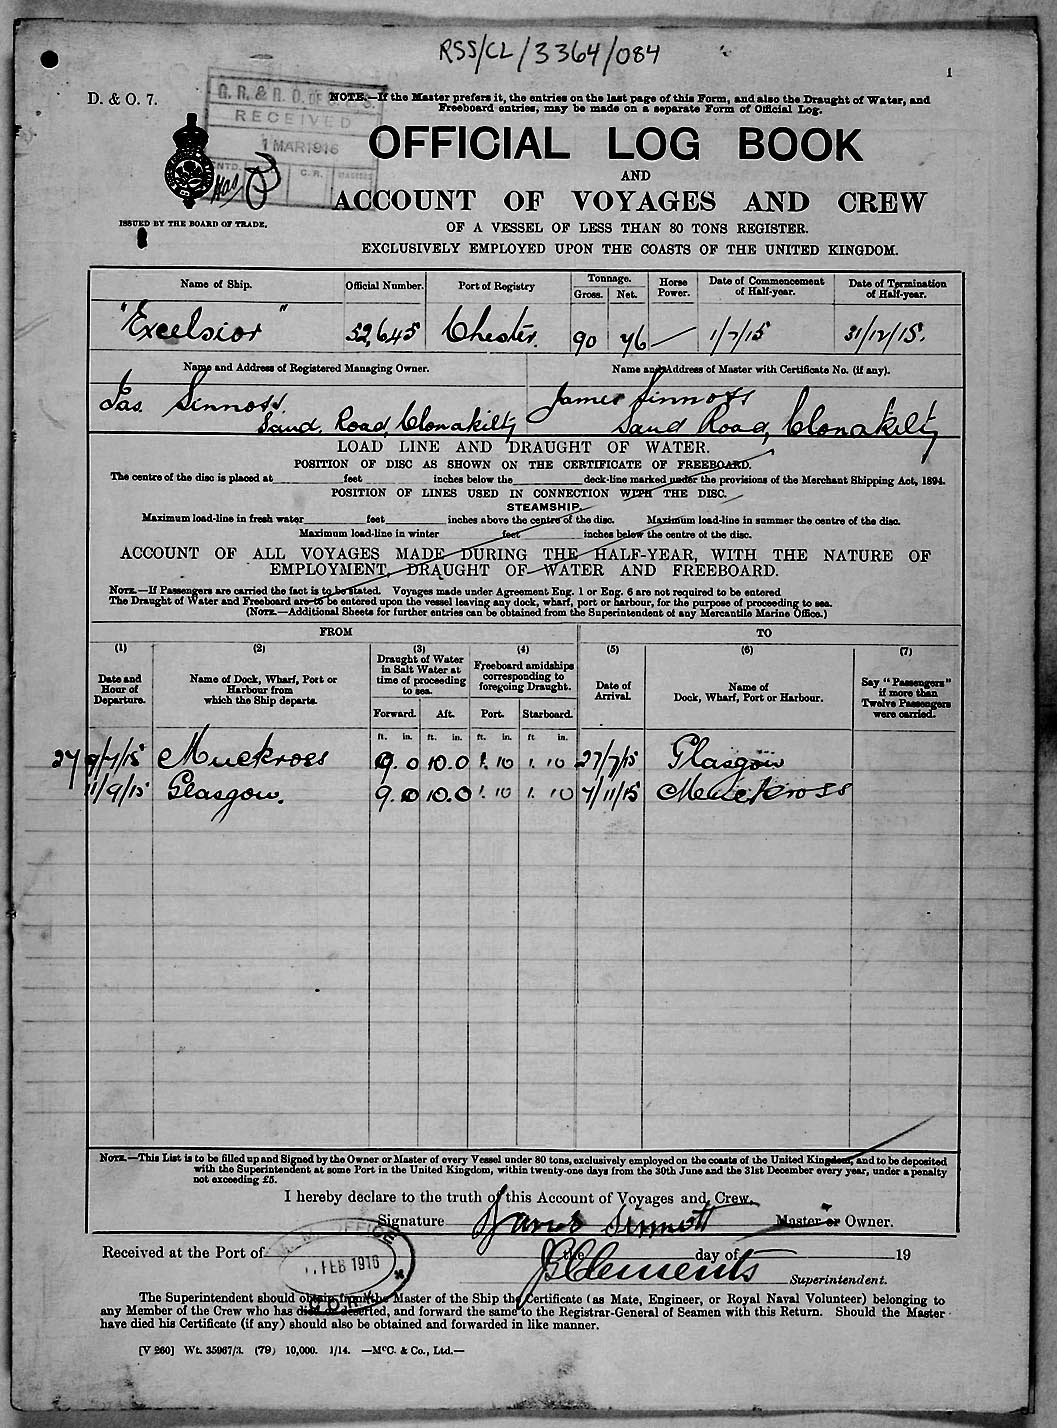 RSS/CL/3364/084
1
D. & O. 7.
G. R. & R. O. OF S. & S.
RECEIVED
1 MAR 1916
NTD.
C. R.
NOTE.—If the Master prefers it, the entries on the last page of this Form, and also the Draught of Water, and
Freeboard entries, may be made on a separate Form of Official Log.
OFFICIAL LOG BOOK
AND
ACCOUNT OF VOYAGES AND CREW
ISSUED BY THE BOARD OF TRADE.
OF A VESSEL OF LESS THAN 80 TONS REGISTER.
EXCLUSIVELY EMPLOYED UPON THE COASTS OF THE UNITED KINGDOM.
Name of Ship. Official Number. Port of Registry Tonnage. Gross. Net. Horse Power. Date of Commencement of Half-year. Date of Termination of Half-year.
"Excelsior" 52,645 Chester. 90 76 — 1/7/15 31/12/15.
Name and Address of Registered Managing Owner. Name and Address of Master with Certificate No. (if any).
Jas. Sinnoss. James Sinnoss
Sand Road, Clonakilty Sand Road, Clonakilty
LOAD LINE AND DRAUGHT OF WATER.
POSITION OF DISC AS SHOWN ON THE CERTIFICATE OF FREEBOARD.
The centre of the disc is placed at feet inches below the deck-line marked under the provisions of the Merchant Shipping Act, 1894.
POSITION OF LINES USED IN CONNECTION WITH THE DISC.
STEAMSHIP.
Maximum load-line in fresh water feet inches above the centre of the disc. Maximum load-line in summer the centre of the disc.
Maximum load-line in winter feet inches below the centre of the disc.
ACCOUNT OF ALL VOYAGES MADE DURING THE HALF-YEAR, WITH THE NATURE OF
EMPLOYMENT, DRAUGHT OF WATER AND FREEBOARD.
NOTE.—If Passengers are carried the fact is to be stated. Voyages made under Agreement Eng. 1 or Eng. 6 are not required to be entered
The Draught of Water and Freeboard are to be entered upon the vessel leaving any dock, wharf, port or harbour, for the purpose of proceeding to sea.
(NOTE.—Additional Sheets for further entries can be obtained from the Superintendent of any Mercantile Marine Office.)
FROM TO
(1) (2) (3) (4) (5) (6) (7)
Date and Hour of Departure. Name of Dock, Wharf, Port or Harbour from which the Ship departs. Draught of Water in Salt Water at time of proceeding to sea. Freeboard amidships corresponding to foregoing Draught. Date of Arrival. Name of Dock, Wharf, Port or Harbour. Say "Passengers" if more than Twelve Passengers were carried.
Forward. Aft. Port. Starboard.
ft. in. ft. in. ft. in. ft in.
27 9/7/15 Muckross 9.0 10.0 1.10 1.10 27/7/15 Glasgow
1/9/15 Glasgow. 9.0 10.0 1.10 1.10 7/11/15 Muckross
NOTE.—This List is to be filled up and Signed by the Owner or Master of every Vessel under 80 tons, exclusively employed on the coasts of the United Kingdom, and to be deposited
with the Superintendent at some Port in the United Kingdom, within twenty-one days from the 30th June and the 31st December every year, under a penalty
not exceeding £5.
I hereby declare to the truth of this Account of Voyages and Crew.
Signature James Sinnott Master or Owner.
Received at the Port of the day of 19
OFFICE
FEB 1916
J Clements Superintendent.
The Superintendent should obtain from the Master of the Ship the Certificate (as Mate, Engineer, or Royal Naval Volunteer) belonging to
any Member of the Crew who has died or deserted, and forward the same to the Registrar-General of Seamen with this Return. Should the Master
have died his Certificate (if any) should also be obtained and forwarded in like manner.
[V 260] Wt. 35967/3. (79) 10,000. 1/14. —McC. & Co., Ltd.—